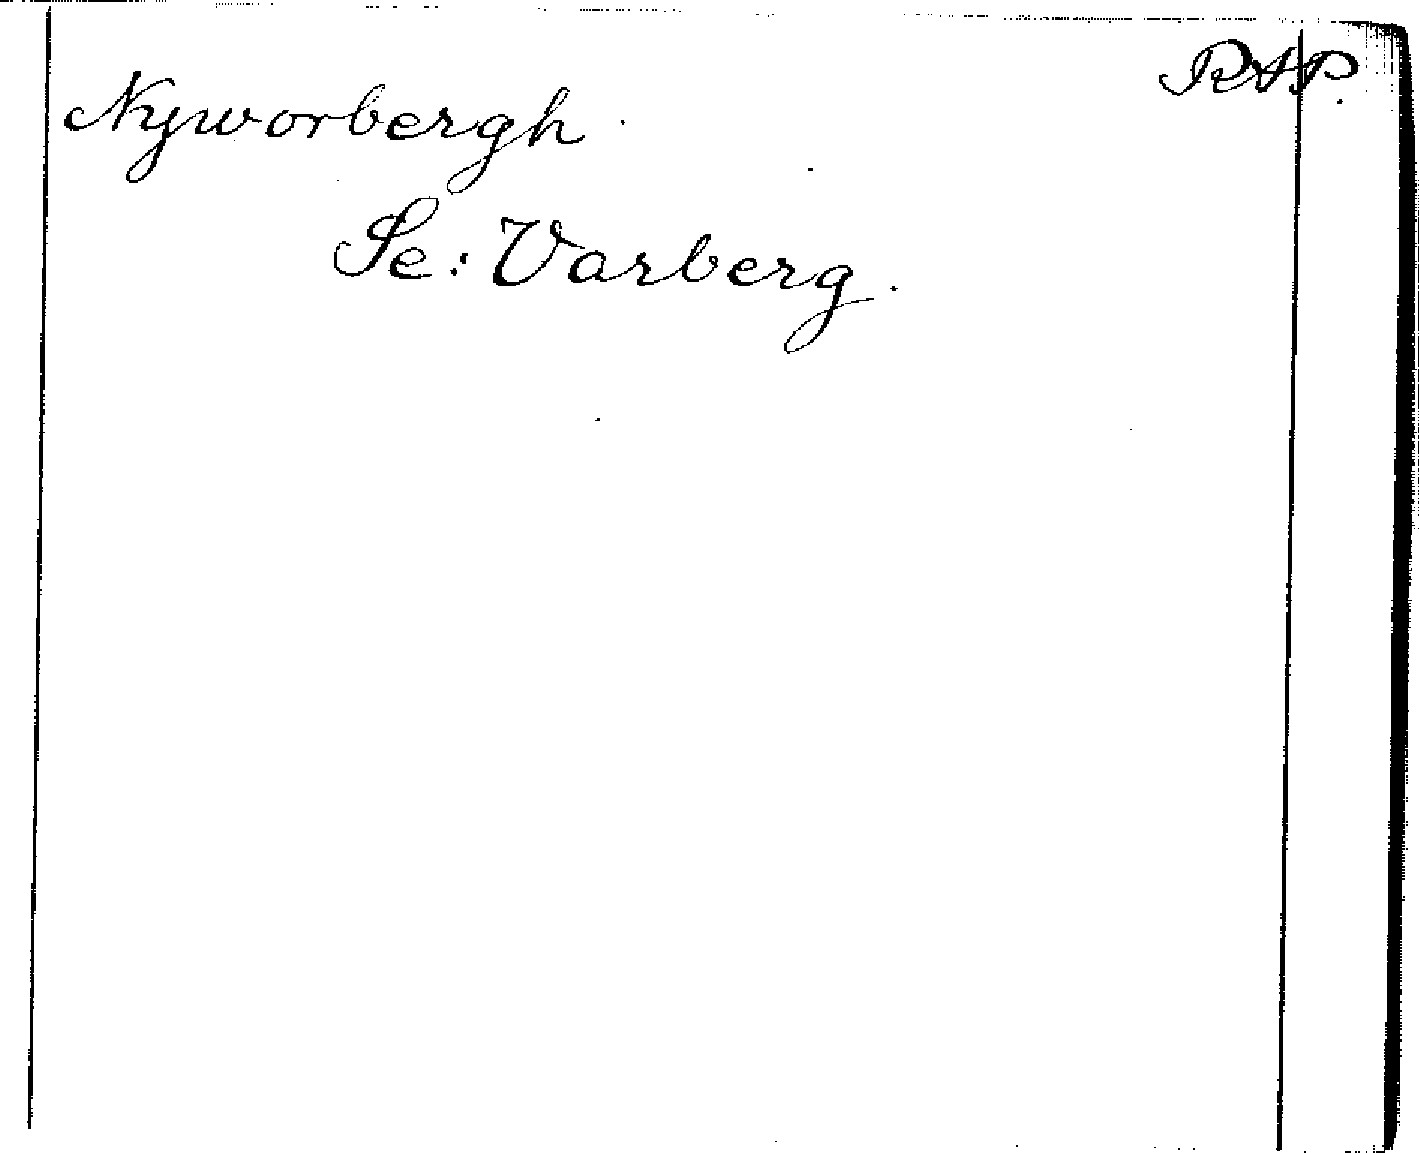 RAP.
Nyworbergh.
Se: Varberg.